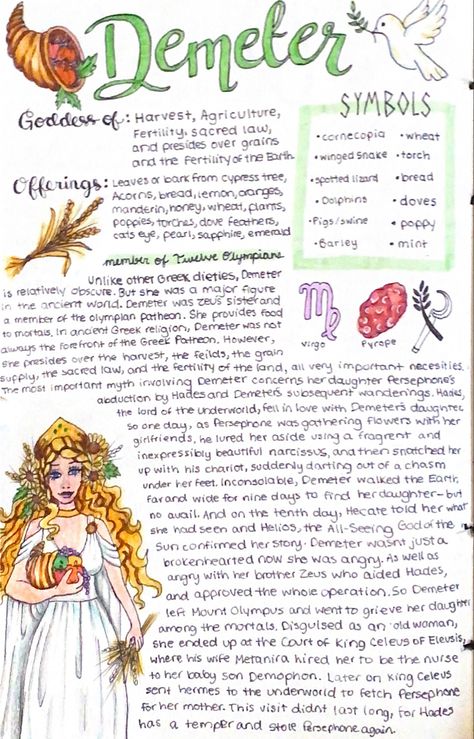 Demeter
Goddess of: Harvest, Agriculture,
Fertility, sacred law,
and presides over grains
and the Fertility of the Earth
Offerings: Leaves or bark from cypress tree,
Acorns, bread, lemon, oranges,
manderin, honey, wheat, plants,
poppies, torches, dove feathers,
cats eye, pearl, sapphire, emerald
SYMBOLS
•cornecopia •wheat
•winged snake •torch
•spotted lizard •bread
•Dolphins •doves
•Pigs/swine •poppy
•Barley •mint
member of Twelve Olympians
Virgo
Pyrope
Unlike other Greek dieties, Demeter
is relatively obscure. But she was a major figure
in the ancient world. Demeter was zeus' sister and
a member of the olympian patheon. She provides food
to mortals. In ancient Greek religion, Demeter was not
always the forefront of the Greek Patreon. However,
she presides over the harvest, the feilds, the grain
supply, the sacred law, and the fertility of the land, all very important necesities.
The most important myth involving Demeter concerns her daughter Persephone's
abduction by Hades and Demeter's subsequent wanderings. Hades,
the lord of the underworld, fell in love with Demeter's daughter,
so one day, as Persephone was gathering flowers with her
girlfriends, he lured her aside using a fragrent and
inexpressibly beautiful narcissus, and then snatched her
up with his chariot, suddenly darting out of a chasm
under her feet. Inconsolable, Demeter walked the Earth
far and wide for nine days to find her daughter- but
no avail. And on the tenth day, Hecate told her what
she had seen and Helios, the All-Seeing God of the
Sun confirmed her story. Demeter wasnt just a
brokenhearted now she was angry. As well as
angry with her brother Zeus who aided Hades,
and approved the whole operation. So Demeter
left Mount Olympus and went to grieve her daughter
among the mortals. Disguised as an old woman,
she ended up at the Court of King Celeus of Eleusis,
where his wife Metanira hired her to be the nurse
to her baby son Demophon. Later on King Celeus
sent hermes to the underworld to fetch Persephone
for her mother. This visit didnt last long, for Hades
has a temper and stole Persephone again.